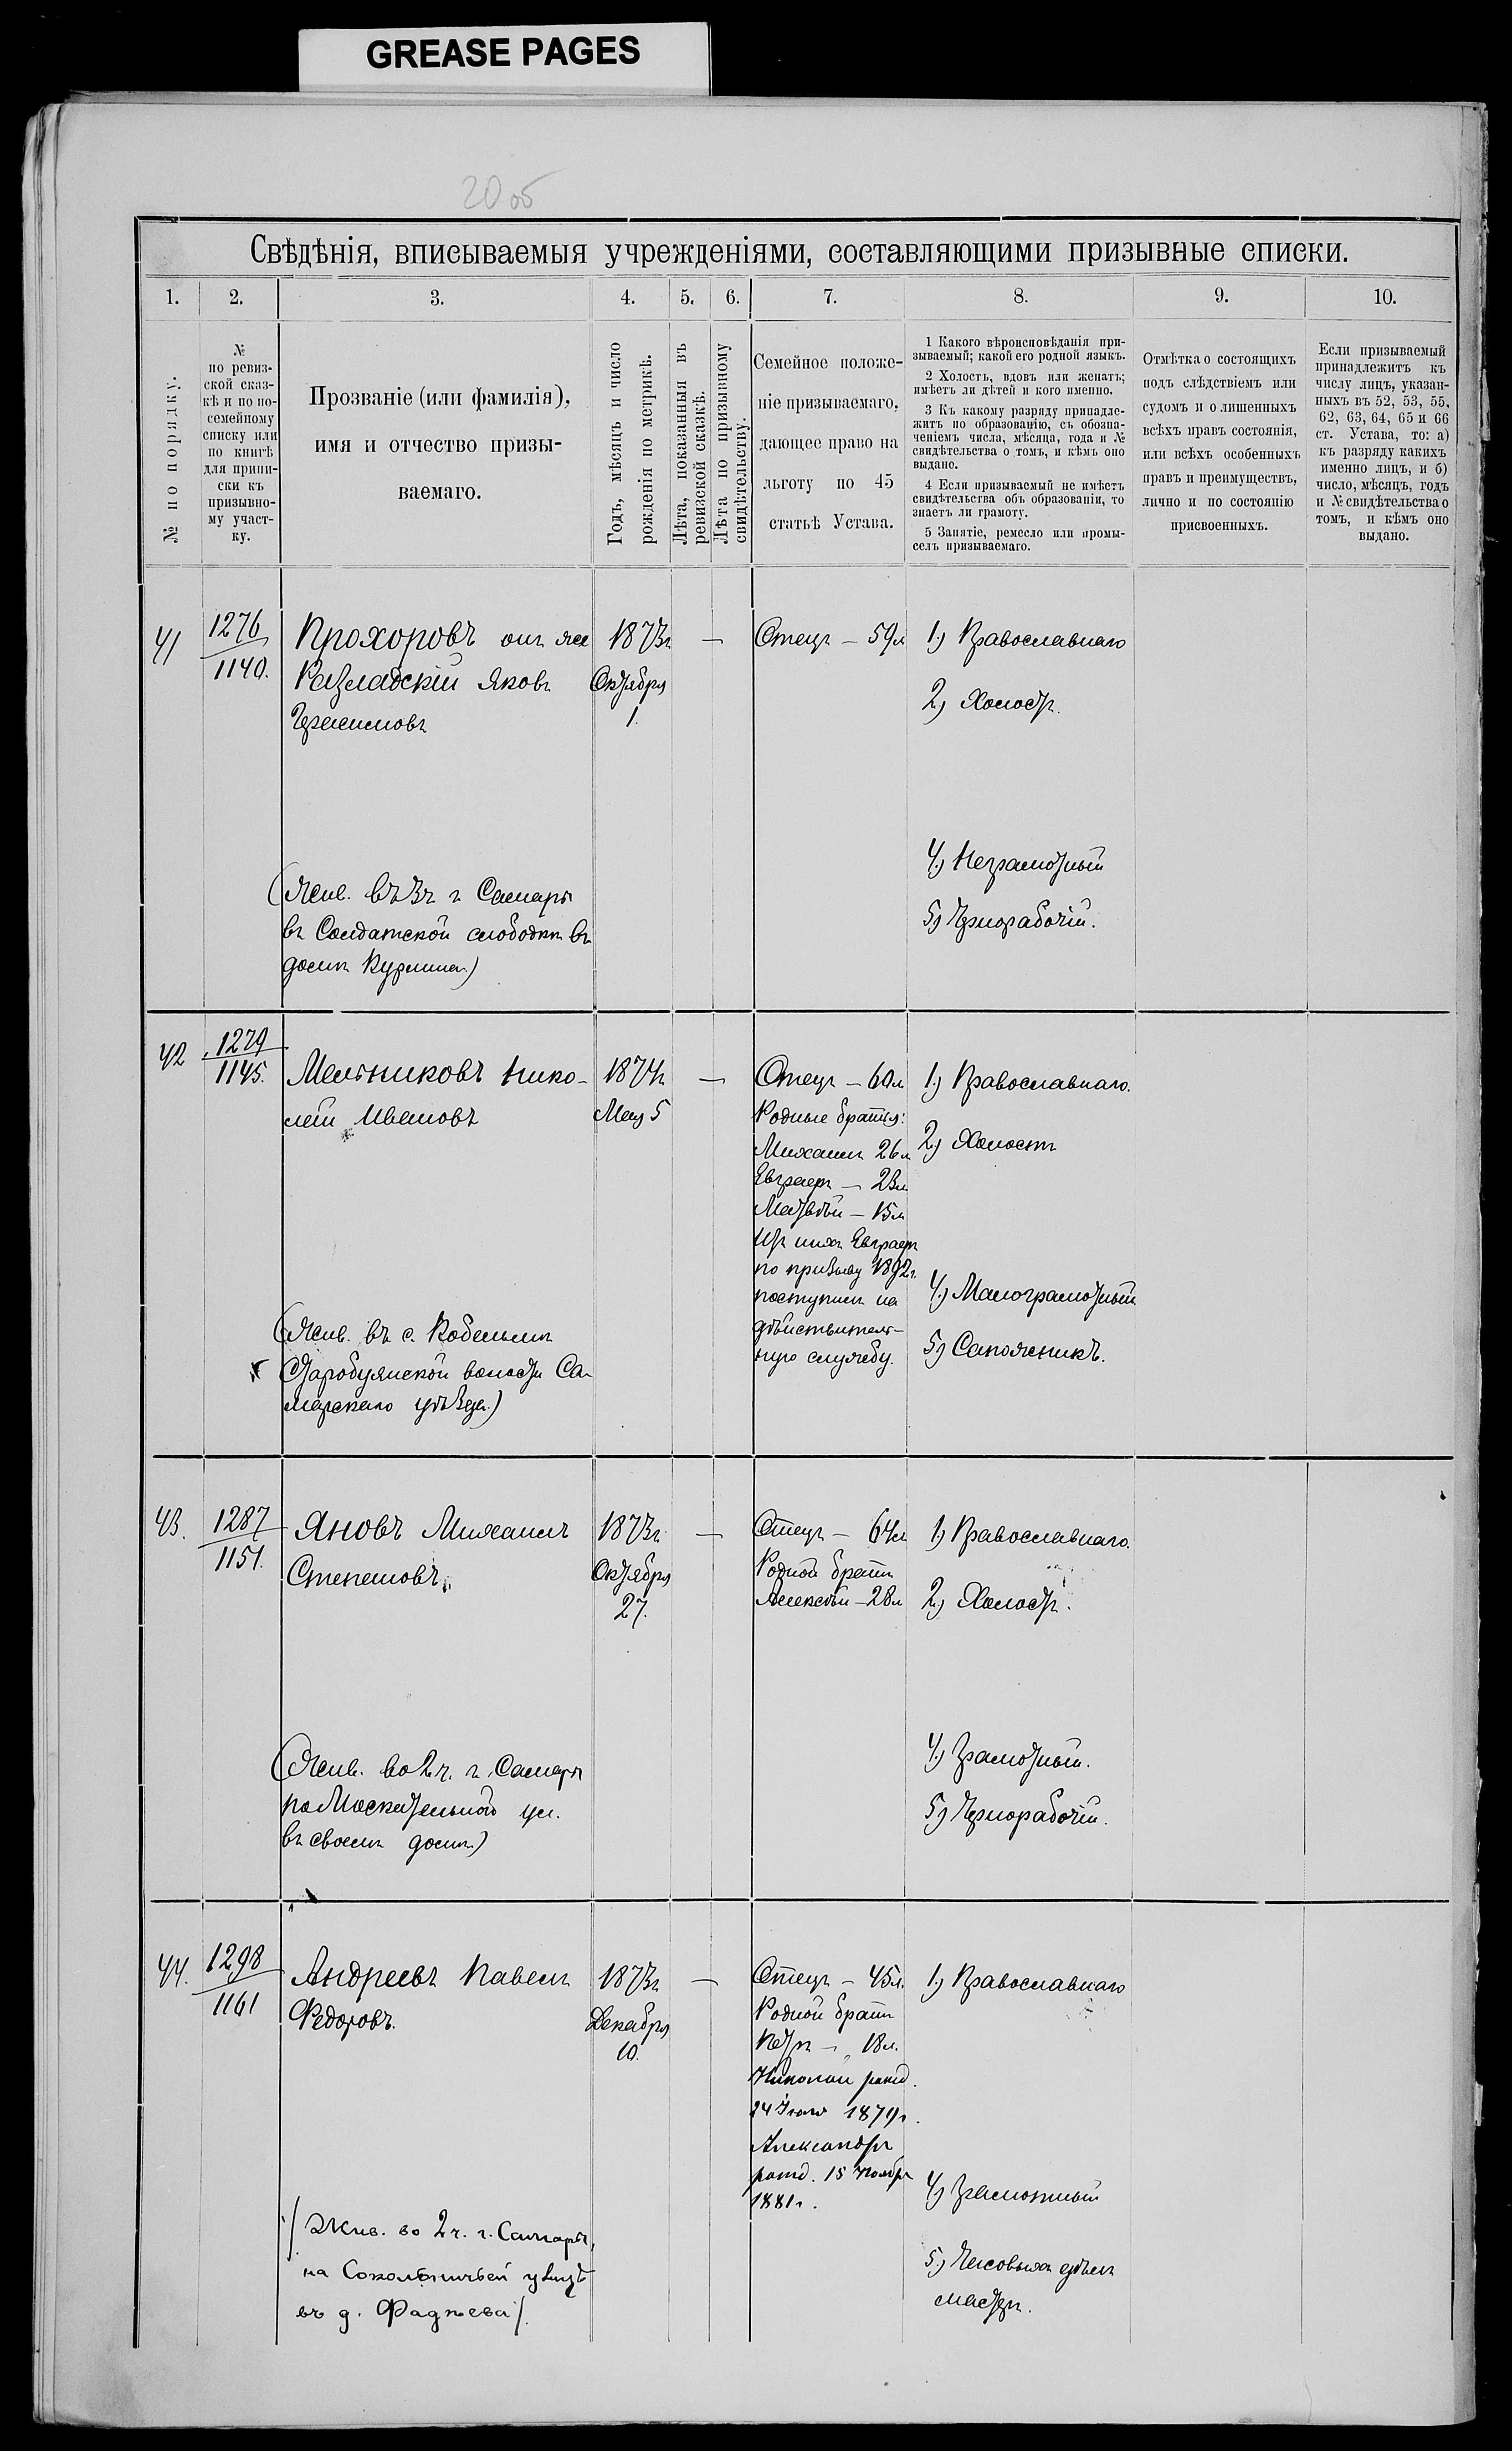 GREASE PAGES
20 об
Свѣдѣнія, вписываемыя учрежденіями, составляющими призывные списки.
1. 2. 3. 4. 5. 6. 7. 8. 9. 10.
№ по порядку.
№
по ревиз-
ской сказ-
кѣ и по по-
семейному
списку или
по книгѣ
для припи-
ски къ
призывно-
му участ-
ку.
Прозваніе (или фамилія),
имя и отчество призы-
ваемаго.
Годъ, мѣсяцъ и число
рожденія по метрикѣ.
Лѣта, показанныя въ
ревизской сказкѣ.
Лѣта по призывному
свидѣтельству.
Семейное положе-
ніе призываемаго,
дающее право на
льготу по 45
статьѣ Устава.
1 Какого вѣроисповѣданія при-
зываемый; какой его родной языкъ.
2 Холостъ, вдовъ или женатъ;
имѣетъ ли дѣтей и кого именно.
3 Къ какому разряду принадле-
житъ по образованію, съ обозна-
ченіемъ числа, мѣсяца, года и №
свидѣтельства о томъ, и кѣмъ оно
выдано.
4 Если призываемый не имѣетъ
свидѣтельства объ образованіи, то
знаетъ ли грамоту.
5 Занятіе, ремесло или промы-
селъ призываемаго.
Отмѣтка о состоящихъ
подъ слѣдствіемъ или
судомъ и о лишенныхъ
всѣхъ правъ состоянія,
или всѣхъ особенныхъ
правъ и преимуществъ,
лично и по состоянію
присвоенныхъ.
Если призываемый
принадлежитъ къ
числу лицъ, указан-
ныхъ въ 52, 53, 55,
62, 63, 64, 65 и 66
ст. Устава, то: а)
къ разряду какихъ
именно лицъ, и б)
число, мѣсяцъ, годъ
и № свидѣтельства о
томъ, и кѣмъ оно
выдано.
41
1276
1140.
Прохоровъ онъ же
Яковъ
(Жив. въ 3ч г. Самары
въ Солдатской слободкѣ въ
домѣ)
1873г
Октября
1.
—
Отецъ — 59л
1) Православнаго
2) Холостъ.
4) Неграмотный
5) Чернорабочій.
42
1279
1145.
Мельниковъ Нико-
лай Ивановъ
(Жив. въ с. Кобельмѣ
Старобуянской волости Са-
марскаго уѣзда.)
1874г
Мая 5
—
Отецъ — 60л
Родные братья:
Михаилъ 26л
Евграфъ — 23л
Матвѣй — 15л
Изъ нихъ Евграфъ
по призыву 1892г.
поступилъ на
дѣйствитель-
ную службу.
1) Православнаго.
2) Холостъ
4) Малограмотный
5) Сапожникъ.
43.
1287
1151.
Яновъ Михаилъ
Степановъ.
(Жив. во 2ч. г. Самары
по Москательной ул.
въ своемъ домѣ)
1873г
Октября
27.
—
Отецъ — 64л
Родной братъ
Алексѣй — 28л
1) Православнаго.
2) Холостъ.
4) Грамотный.
5) Чернорабочій.
44.
1298
1161
Андреевъ Павелъ
Федоровъ.
(Жив. во 2 ч. г. Самары,
на Сокольничьей улицѣ
въ д. Фадѣева)
1873г
Декабря
10.
—
Отецъ — 45л.
Родной братъ
Петръ — 18л.
Николай рожд.
24 1879г.
Александръ
рожд. 15 Ноября
1881г.
1) Православнаго
4) Грамотный
5) Часовыхъ дѣлъ
мастеръ.